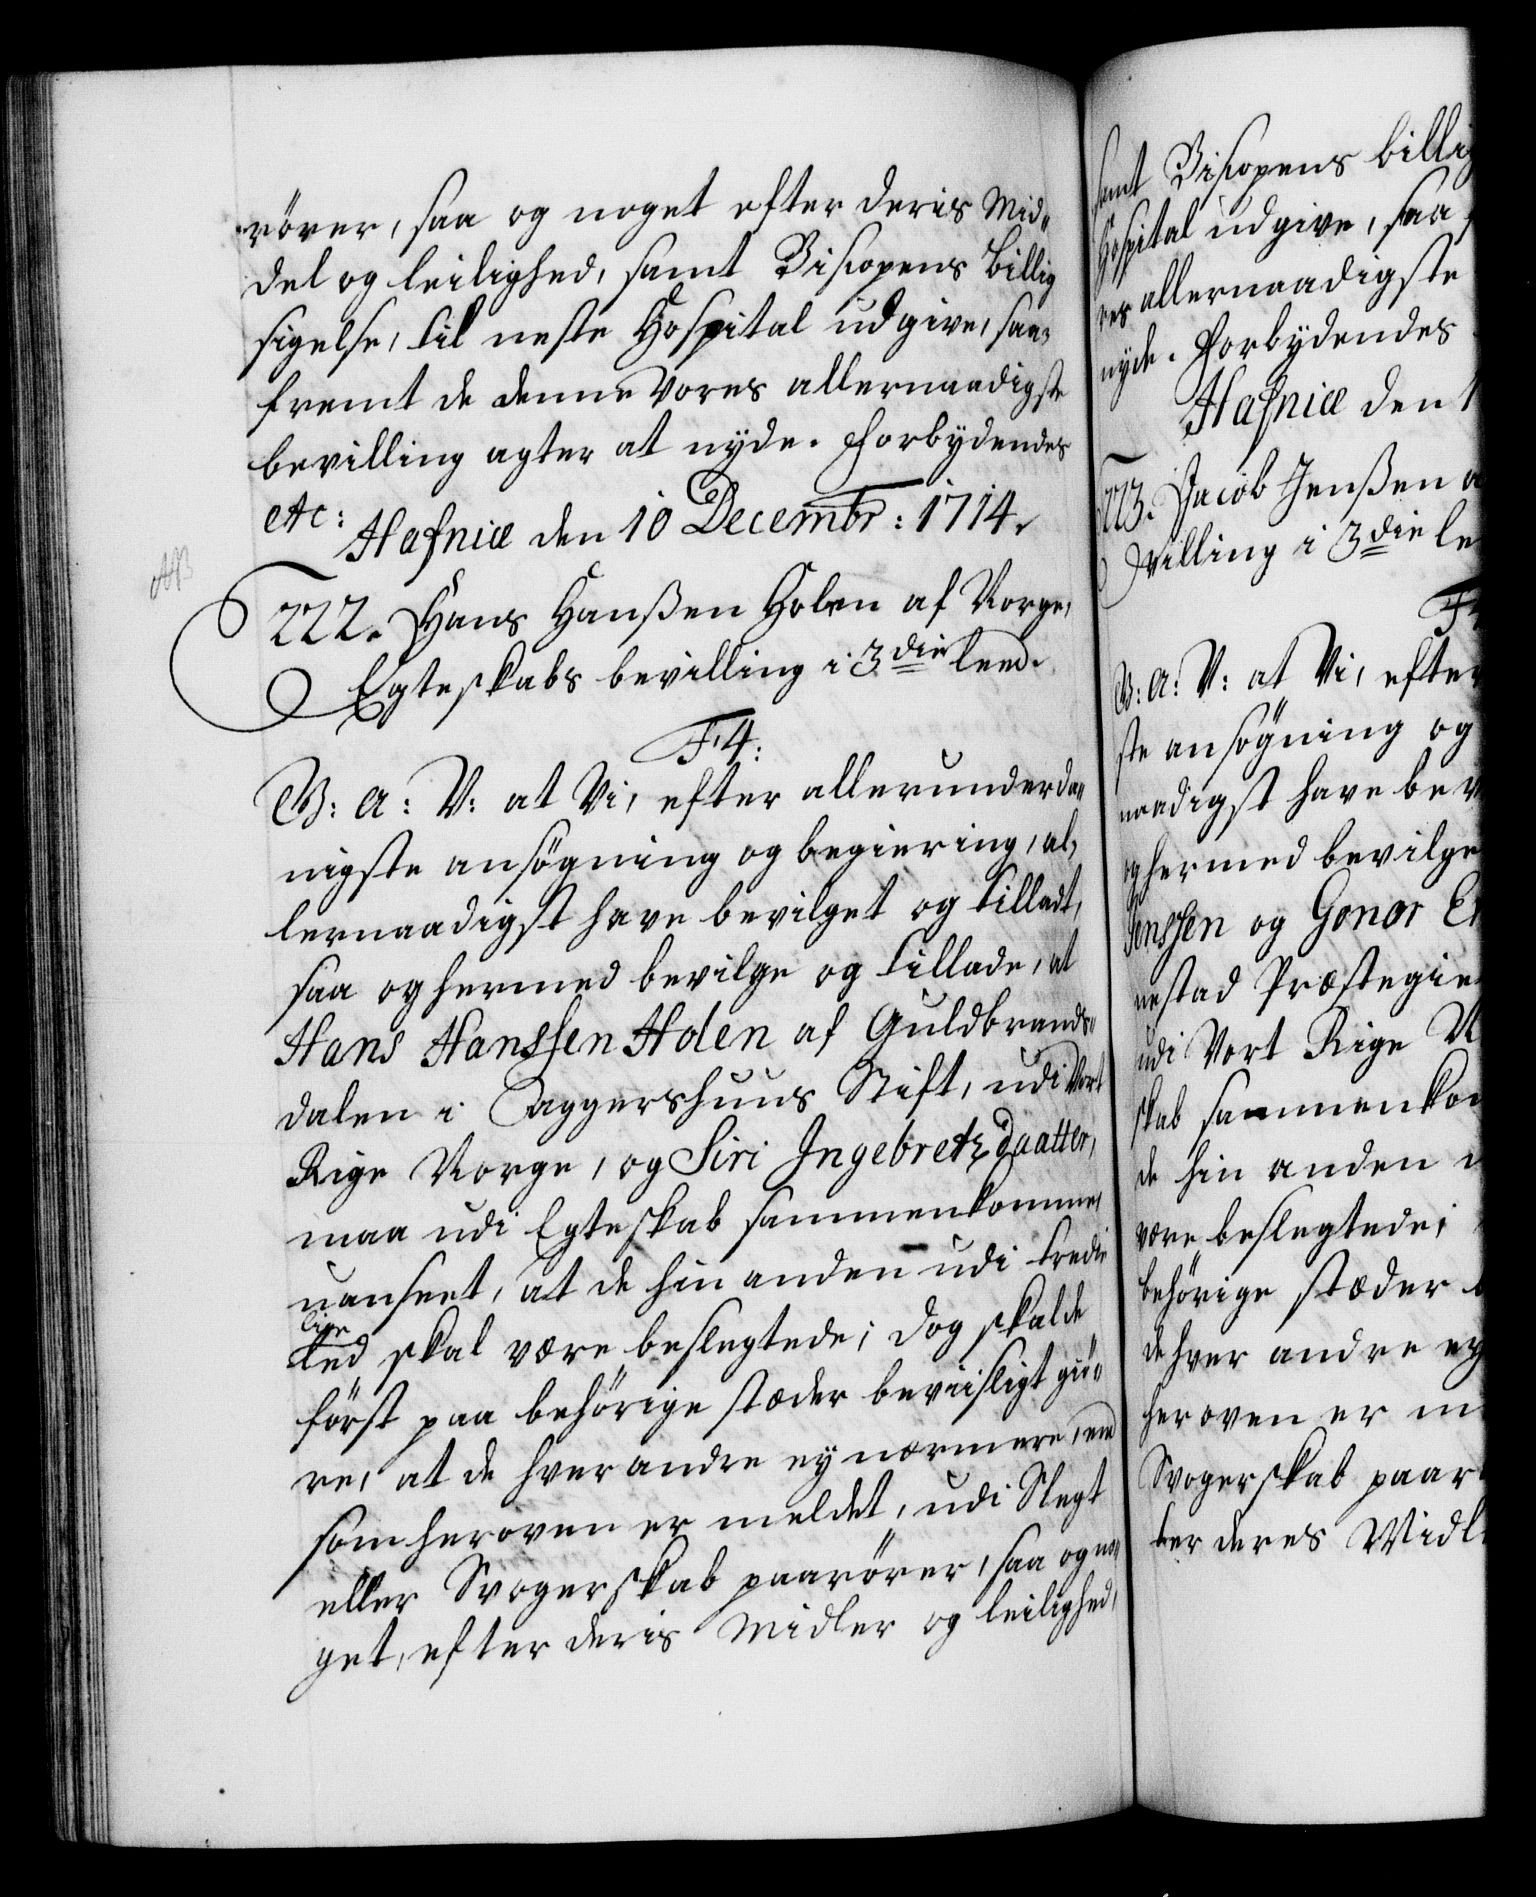 rörer, saa og noget efter deris Mid„
del og leilighed, samt Biscopens Billig
sigelse, til neste Hospital udgive, saa„
fremt de denne Vores allernaadigste
bevilling agter at nyde. Forbydendes
etc: Hafniæ den 10 Decembr: 1714.
222. Hans Hanßen Holen af Norge,
Egteskabs bevilling i 3die leed.
F4:
G: A: V: at Vi, efter allerunderda„
nigste ansögning og begiering, al„
lernaadigst have bevilget og tilladt,
saa og hermed bevilge og tillade, at
Hans Hanssen Holen af Guldbrands„
dalen i Aggershuus Stift, udi Vort
Rige Norge, og Siri Ingebretzdaatter,
maa udi Egteskab sammenkomme,
uanseet, at de hin anden udi tredie
lige
Led skal være beslegtede; dog skal de
först paa behörige stæder beviisligt giö„
re, at de hver andre ey nærmere, end
som heroven er meldet, udi Slegt
eller Svogerskab paarörer, saa og no„
get, efter deris Midler og leilighed,
samt Biscopens billig
Hospital udgive, saa
res allernaadigste
nyde. Forbydendes
Hafniæ den 1
223. Jacob Jenßen
villing i 3die le
F4
G: A: V: at Vi, efter
ste ansögning og
naadigst have bev
og hermed bevilge
Jenssen og Gonor
nestad Præstegie
udi Vort Rige N
skab sammenkom
de hin anden
være beslegtede;
behörige stæder
de hver andre ey
heroven er m
Svogerskab paar
ter deres Midl